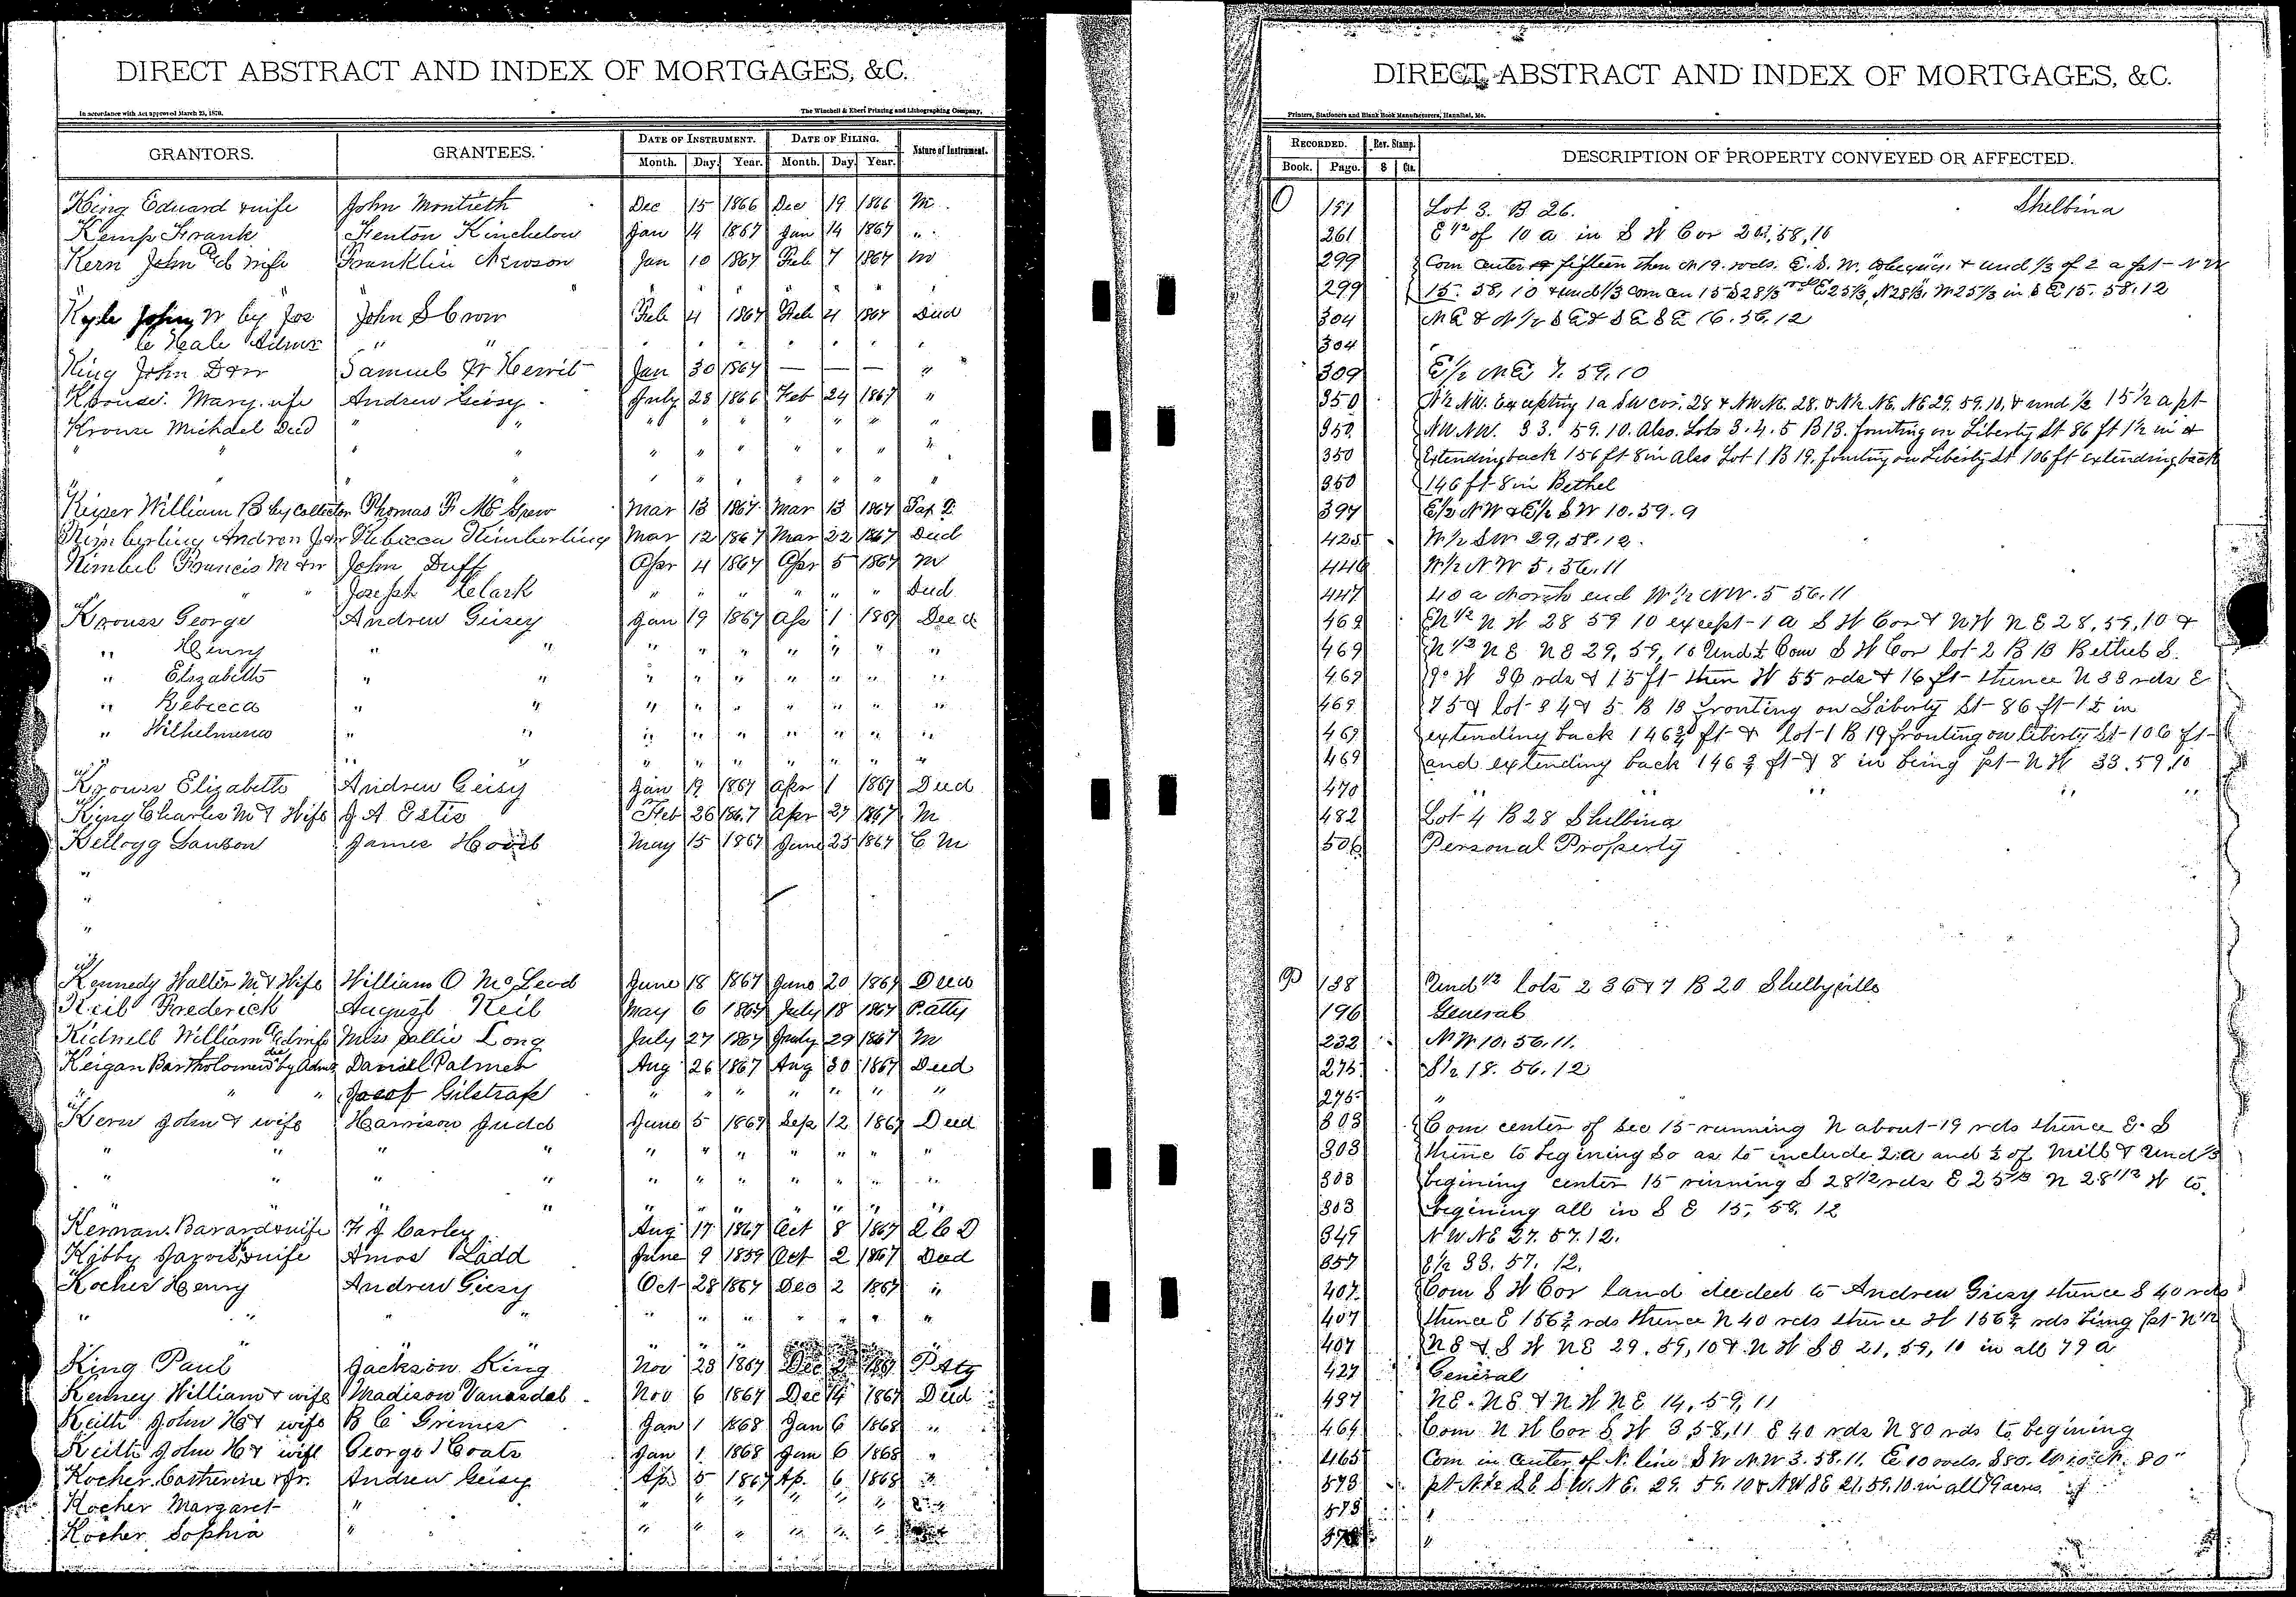 DIRECT ABSTRACT AND INDEX OF MORTGAGES, &C.
In accordance with Act approved March 23, 1870.
The Winchell & Ebert Printing and Lithographing Company,
GRANTORS. GRANTEES. DATE OF INSTRUMENT. DATE OF FILING. Nature of Instrument.
Month. Day. Year. Month. Day. Year.
King Edward & wife John Montieth Dec 15 1866 Dec 19 1866 M
Kemp Frank Fenton Kinchelow Jan 14 1867 Jan 14 1867 "
Kern John & wife Franklin Newson Jan 10 1867 Feb 7 1867 M
" " " " " " "
Kyle John W by Jos John S Crow Feb 4 1867 Feb 4 1867 Deed
C Hale Admr " " " " " " " " "
King John D & w Samuel Jan 30 1867 — — — "
Krouse Mary wife Andrew Geisy July 28 1866 Feb 24 1867 "
Krouse Michael Decd " " " " " " " " "
" " " " " " " " " " "
" " " " " " " " "
Keiser William B by Collector Thomas F McGrew Mar 13 1867 Mar 13 1867 Tax D
Kimberling Andrew J & w Rebecca Kimberling Mar 12 1867 Mar 22 1867 Deed
Kimbel Francis M & w John Duff Apr 4 1867 Apr 5 1867 M
" " Joseph Clark " " " " " " Deed
Krouse George Andrew Geisey Jan 19 1867 Ap 1 1867 Deed
" Henry " " " " " " " " "
" Elizabeth " " " " " " " " "
" Rebecca " " " " " " " " "
" Wilhelmena " " " " " " " " "
" " " " " " " " " " "
Krouse Elizabeth Andrew Geisy Jan 19 1867 Apr 1 1867 Deed
King Charles M & Wife J A Estis Feb 26 1867 Apr 27 1867 M
Kellogg Sanson James May 15 1867 June 25 1867 C M
"
"
"
"
Kennedy Walter M & Wife William O McLeod June 18 1867 June 20 1867 Deed
Keil Frederick August Keil May 6 1867 July 18 1867 P. atty
Kidwell William & wife Miss Sallie Long July 27 1867 July 29 1867 M
Keigan Bartholomew decd by Admr Daniel Palmer Aug 26 1867 Aug 30 1867 Deed
" " " Jacob Gilstrap " " " " " " "
Kern John & wife Harrison Judd June 5 1867 Sep 12 1867 Deed
" " " " " " " " " " "
" " " " " " " " " " "
" " " " " " " " " " "
Kernan Barard & wife F J Carley Aug 17 1867 Oct 8 1867 Q C D
Kibby Jarvis & wife Amos Ladd June 9 1859 Oct 2 1867 Deed
Kocher Henry Andrew Giesy Oct 28 1867 Dec 2 1867 "
" " " " " " " " " " "
" " " " " " " " "
King Paul Jackson King Nov 23 1867 Dec 2 1867 P Aty
Kenney William & wife Madison Vanosdal Nov 6 1867 Dec 14 1867 Deed
Keith John H & wife B C Grimes Jan 1 1868 Jan 6 1868 "
Keith John H & wife George Coats Jan 1 1868 Jan 6 1868 "
Kocher Catherine & Jr. Andrew Geisy Ap 5 1867 Ap. 6 1868 "
Kocher Margaret " " " " " " " "
Kocher Sophia " " " " " " "
DIRECT ABSTRACT AND INDEX OF MORTGAGES, &C.
Printers, Stationers and Blank Book Manufacturers, Hannibal, Mo.
RECORDED. Rev. Stamp. DESCRIPTION OF PROPERTY CONVEYED OR AFFECTED.
Book. Page. $ Cts.
O 191 Lot 3. B 26. Shelbina
261 E 1/2 of 10 a in S W Cor 203, 58, 10
299 Com center fifteen then N 19. rods. E. S. W. to begin. & und 1/3 of 2 a pt N W
299 15. 58, 10 & und 1/3 com cen 15 S 28 1/3 E 25 1/3, N 28 1/3, W 25 1/3 in S E 15. 58. 12
304 N E & N 1/2 S E & S E S E 16. 56. 12
304
309 E 1/2 N E 7. 59. 10
350 N 1/2 NW. Excepting 1 a SW cor. 28 & NW NE. 28. & N 1/2 NE. NE 29. 59. 10. & und 1/2 15 1/2 a pt
350 NW NW. 33. 59. 10. Also. Lots 3. 4. 5 B 13. fronting on Liberty St 86 ft 1 1/2 in &
350 Extending back 156 ft 8 in Also Lot 1 B 19. fronting on Liberty St 106 ft extending back
350 146 ft 8 in Bethel
397 E 1/2 NW & E 1/2 S W 10. 59. 9
425 W 1/2 SW 29, 58. 12.
446 W 1/2 N W 5. 56. 11
447 40 a North end W 1/2 NW. 5 56. 11
469 N 1/2 N W 28 59 10 except 1 a S W Cor & N W N E 28, 59, 10 &
469 N 1/2 N E N E 29, 59, 10 Und 1/2 Com S W Cor lot 2 B 13 Bethel S.
469 9° W 38 rds & 15 ft then W 55 rds & 16 ft thence N 38 rds E
469 75 & lot 3 4 & 5. B 13 fronting on Liberty St 86 ft 1 1/2 in
469 extending back 146 3/4 ft & lot 1 B 19 fronting on liberty St 106 ft
469 and extending back 146 3/4 ft & 8 in being pt N W 33. 59. 10
470 " " " "
482 Lot 4 B 28 Shelbina
506 Personal Property
P 138 Und 1/2 lots 2 3 6 & 7 B 20 Shelbyville
196 General
232 NW 10. 56. 11.
275 S 1/2 18. 56. 12
275 "
303 Com center of Sec 15 running N about 19 rds thence E. S
303 thence to begining so as to include 2 a and 1/2 of Mill & Und 1/3
303 begining center 15 running S 28 1/2 rds E 25 1/3 N 28 1/3 W to
303 begining all in S E 15, 58, 12
349 NW NE 27. 57. 12.
357 33. 57. 12.
407. Com S W Cor land deeded to Andrew Giesy thence S 40 rds
407 thence E 156 3/4 rds thence N 40 rds thence W 156 3/4 rds being pt N 1/2
407 N E & S W N E 29, 59, 10 & N W S E 21, 59, 10 in all 79 a
427 General
437 NE. NE & N W N E 14, 59, 11
464 Com N W Cor S W 3 58, 11 E 40 rds N 80 rds to begining
465 Com in center of N. line S W N.W 3. 58. 11. E 10 rods. S 80. W 10. N. 80 "
573 pt N 1/2 S E S W. N E. 29. 59. 10 & NW SE 21. 59. 10 in all 79 acres
573 "
573 "